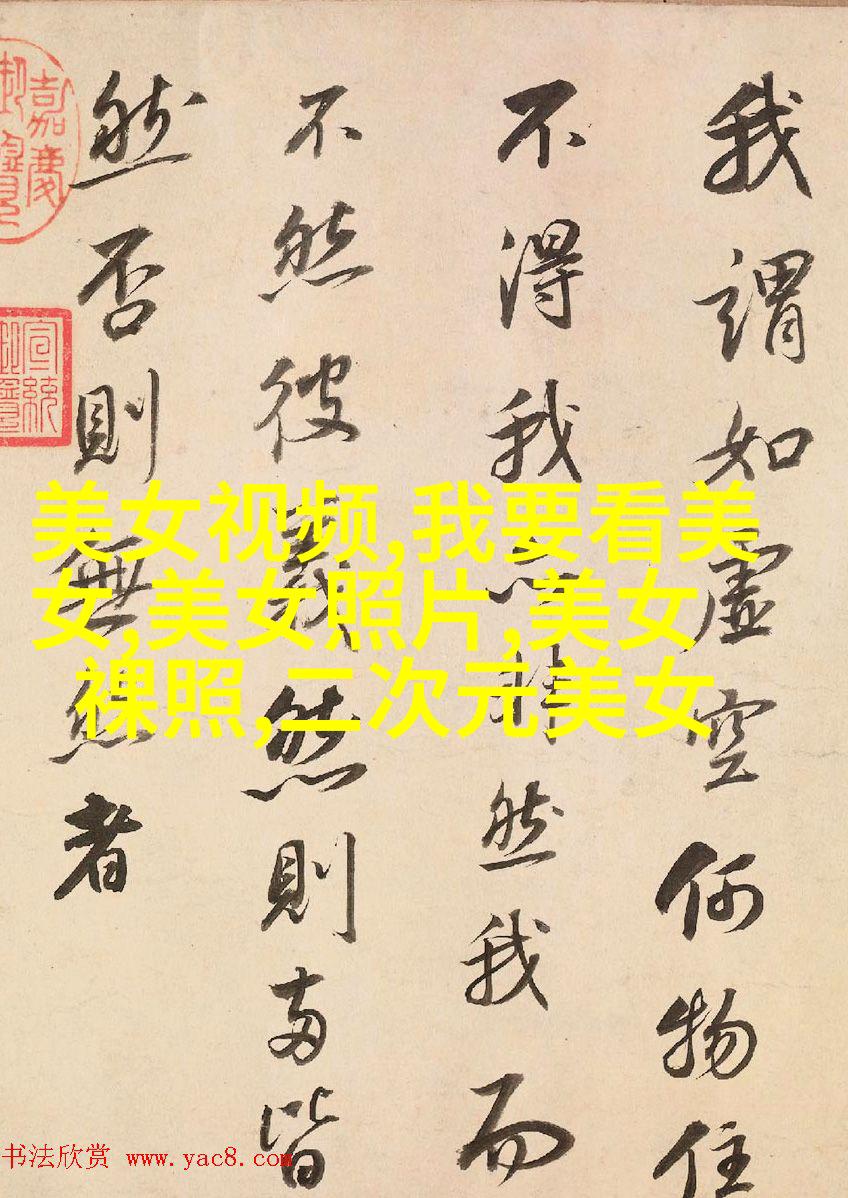 我謂如虛空何物住
不得我亦非然我而
不然彼義然則兩皆
然否則無然者
嘉慶
御覽
宣統
美女视频,我要看美
女,美女照片,美女
裸照,二次元美女
书法欣赏 www.yac8.com